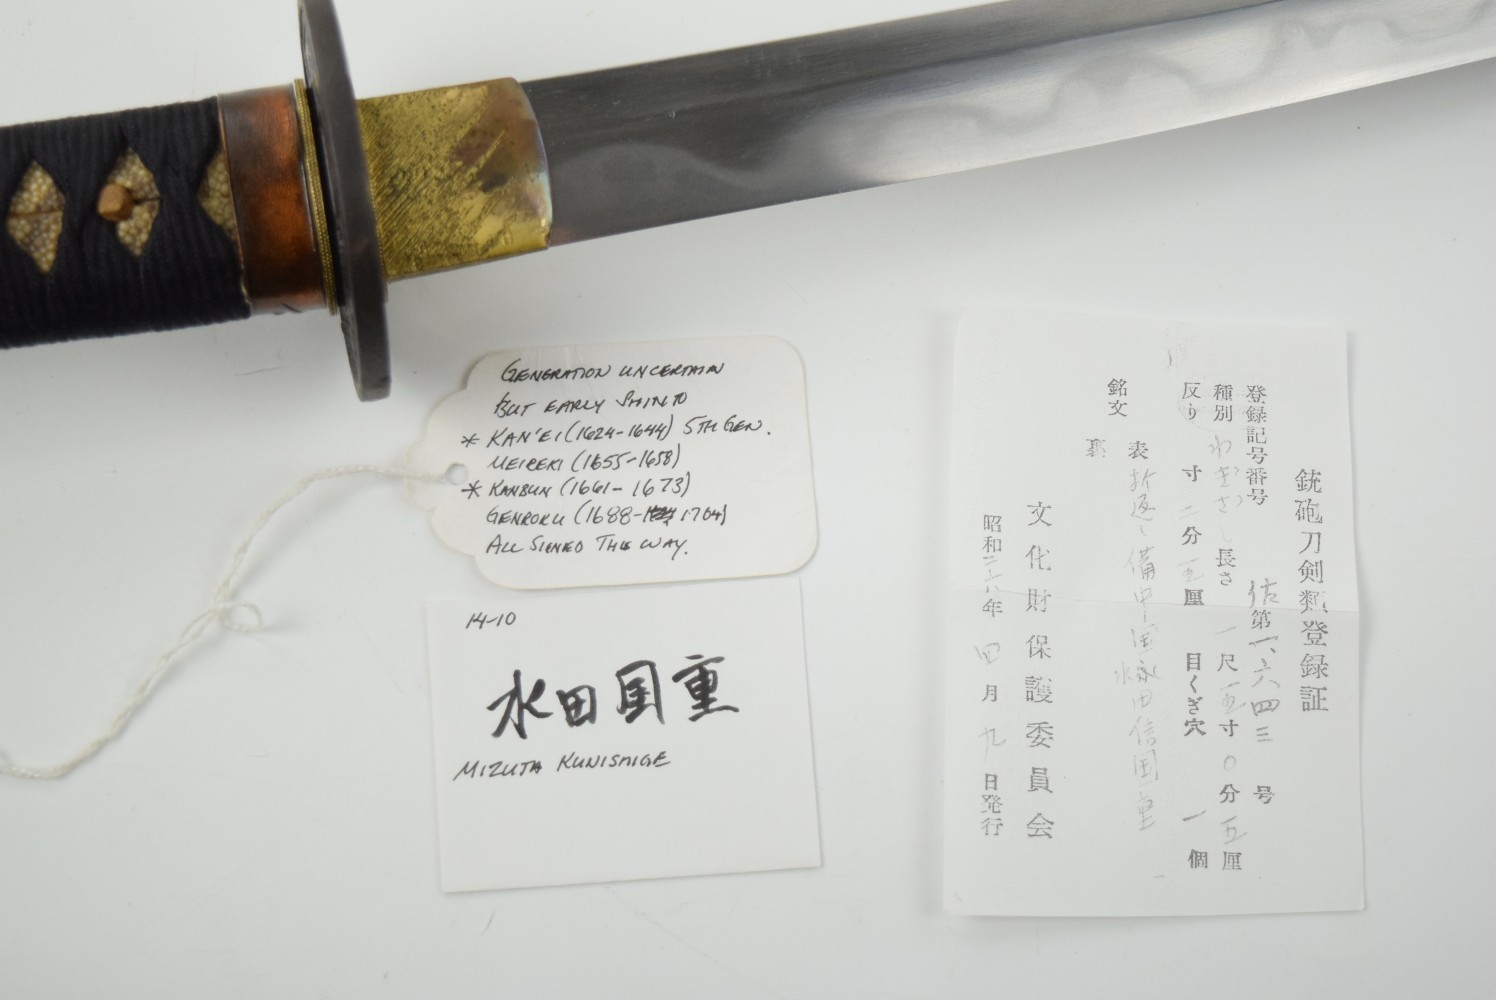 GENERATION UNCERTAIN
BUT EARLY SHINTO
* KAN'EI (1624-1644) 5TH GEN.
MEIREKI (1655-1658)
* KANBUN (1661-1673)
GENROKU (1688-1704)
ALL SIGNED THIS WAY.
14-10
水田国重
MIZUTA KUNISHIGE
銃砲刀剣類登録証
登録記号番号 佐第一六四三号
種別 わきざし 長さ 一尺五寸〇分五厘
反り 寸二分五厘 目くぎ穴 一個
銘文 表 折返し備中国水田住国重
裏
文化財保護委員会
昭和二六年四月九日発行